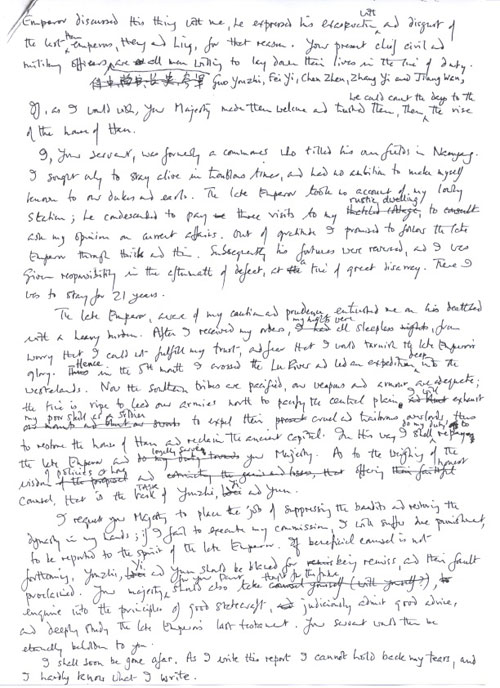 Emperor discussed this thing with me, he expressed his exasperation with and disgust of
the last Han emperors, Huan and Ling, for that reason. Your present chief civil and
military officers are all men willing to lay down their lives in the line of duty.
Guo Youzhi, Fei Yi, Chen Zhen, Zhang Yi and Jiang Wan,
we could count the days to the
If, as I would wish, Your Majesty made them welcome and trusted them, then the rise
of the house of Han.
I, Your servant, was formerly a commoner who tilled his own fields in Nanyang.
I sought only to stay alive in troublous times, and had no ambition to make myself
known to our dukes and earls. The late Emperor took no account of my lowly
rustic dwelling
station; he condescended to pay three visits to my thatched cottage to consult
ask my opinion on current affairs. Out of gratitude I promised to follow the late
Emperor through thick and thin. Subsequently his fortunes were reversed, and I was
given responsibility in the aftermath of defeat, at a time of great disarray. There I
was to stay for 21 years.
The late Emperor, aware of my caution and prudence, entrusted me on his deathbed
my nights were
with a heavy burden. After I received my orders, I had all sleepless nights, from
worry that I could not fulfill my trust, and fear that I would tarnish the late Emperor's
Hence deep
glory. Thus in the 5th month I crossed the Lu River and led an expedition into the
wastelands. Now the southern tribes are pacified, our weapons and armour are adequate;
the time is ripe to lead our armies north to pacify the central plain, exhaust
my poor skill as a soldier
to expel their cruel and traitorous overlords, thus
do my duty to
to restore the house of Han and reclaim the ancient capital. In this way I shall repay
loyally serve
the late Emperor and do my duty towards Your Majesty. As to the weighing of the
policies honest
wisdom of the proposed and offering their faithful
counsel, that is the task of Youzhi, Yi and Yun.
I request Your Majesty to place the job of suppressing the bandits and restoring the
dynasty in my hands; if I fail to execute my commission, I will suffer due punishment,
to be reported to the spirit of the late Emperor. If beneficial counsel is not
forthcoming, Youzhi, Yi and Yun should be blamed for being remiss, and their fault
proclaimed. Your majesty should also take
enquire into the principles of good statecraft, and judiciously admit good advice,
and deeply study the late Emperor's last testament. Your servant would then be
eternally beholden to you.
I shall soon be gone afar. As I write this report I cannot hold back my tears, and
I hardly know what I write.